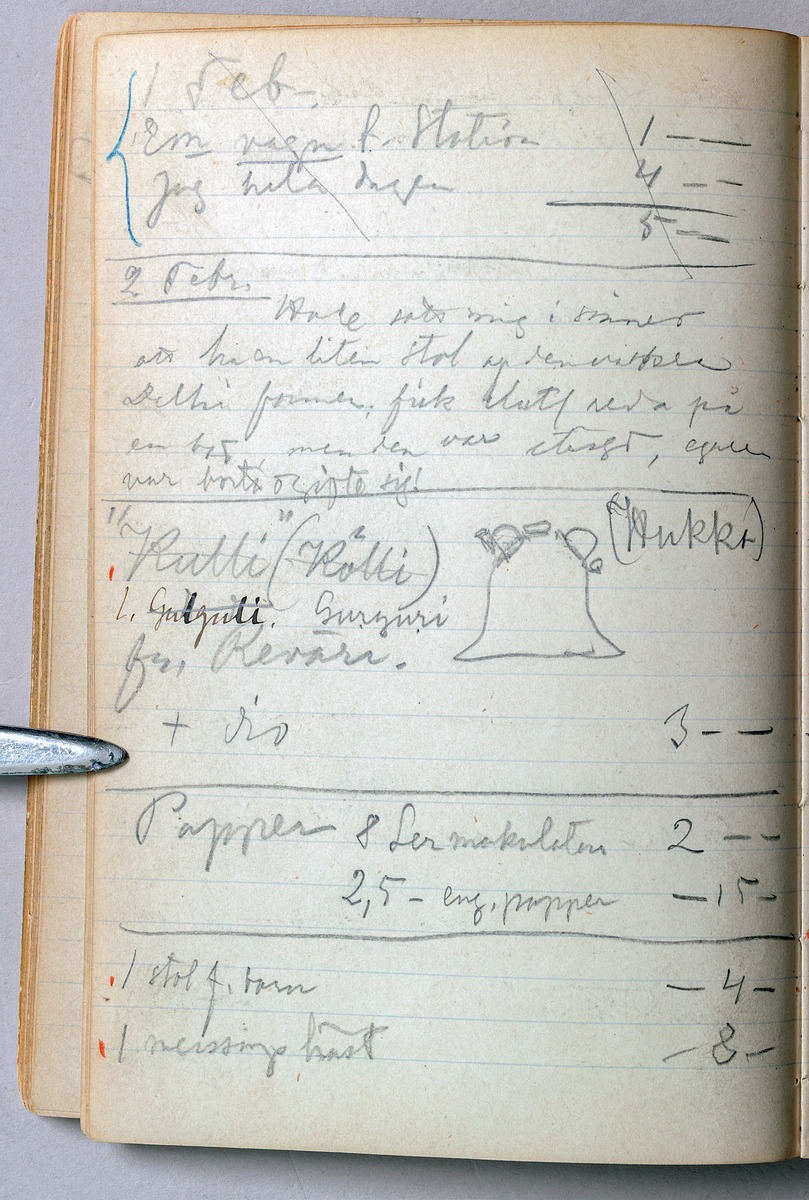 1 Feb.
Em vagn f. Station 1 — —
Jag hela dagen 4 — —
5 — —
2 Febr.
Hade satt mig i sinnet
att ha en liten stol af den vissa
Delhi formen, fick slutl reda på
en bag, men den var stängd, egaren
var borta o gifte sig!
"Kulli" (Kölli) (Hukka)
l. Gulguli. Gurguri
fr. Revari.
+ dio 3 — —
Papper 8 Ser makulatur 2 — —
2,5 — eng. papper — 15 —
1 stol f. barn — 4 —
1 messings häst — 8 —